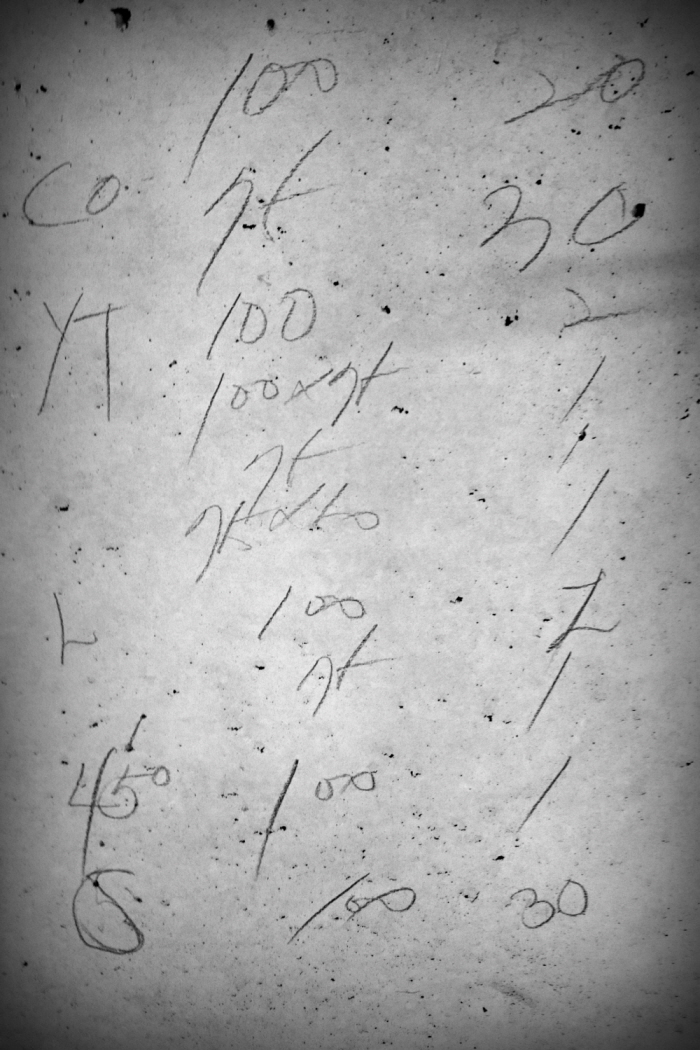 100 20
Co 75 30
YT 100 2
100x75 1
75 1
75x100 1
L 100 2
75 1
45° 100 1
S 100 30